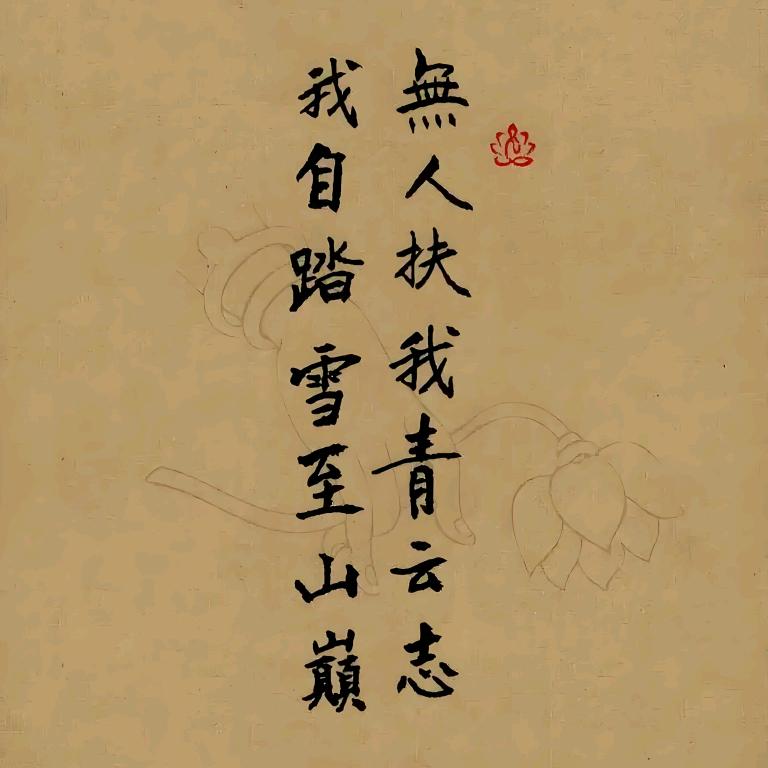 無人扶我青云志
我自踏雪至山巔